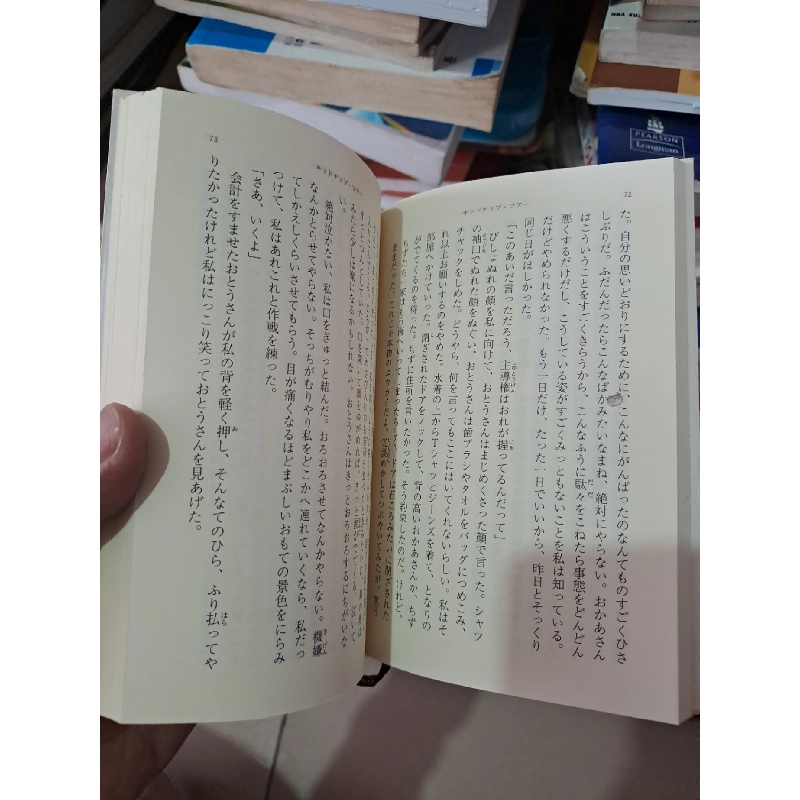 72
キッドナップ・ツアー
た。自分の思いどおりにするために、こんなにがんばったのなんてものすごくひさ
しぶりだ。ふだんだったらこんなばかみたいなまね、絶対にやらない。おかあさん
はこういうことをすごくきらうから、こんなふうに駄々をこねたら事態をどんどん
悪くするだけだし、こうしている姿がすごくみっともないことを私は知っている。
だけどやめられなかった。もう一日だけ、たった一日でいいから、昨日とそっくり
同じ日がほしかった。
「このあいだ言っただろう、主導権はおれが握ってるんだって」
びしょぬれの顔を私に向けて、おとうさんはまじめくさった顔で言った。シャツ
の袖口でぬれた顔をぬぐい、おとうさんは歯ブラシやタオルをバッグにつめこみ、
チャックをしめた。どうやら、何を言ってもここにはいてくれないらしい。私はそ
れ以上お願いするのをやめた。水着の上からTシャツとジーンズを着て、となりの
部屋へかけていった。閉ざされたドアをノックして、背の高いおかあさんか、ちず
がでてくるのを待った。ちずに住所を言いたかった。そう約束したのだ。けれど、
73
キッドナップ・ツアー
い。
絶対泣かない、私は口をぎゅっと結んだ。おろおろさせてなんかやらない。機嫌
なんかとらせてやらない。そっちがむりやり私をどこかへ連れていくなら、私だっ
てしかえしくらいさせてもらう。目が痛くなるほどまぶしいおもての景色をにらみ
つけて、私はあれこれと作戦を練った。
「さあ、いくよ」
会計をすませたおとうさんが私の背を軽く押し、そんなてのひら、ふり払ってや
りたかったけれど私はにっこり笑っておとうさんを見あげた。
PEARSON
Longman